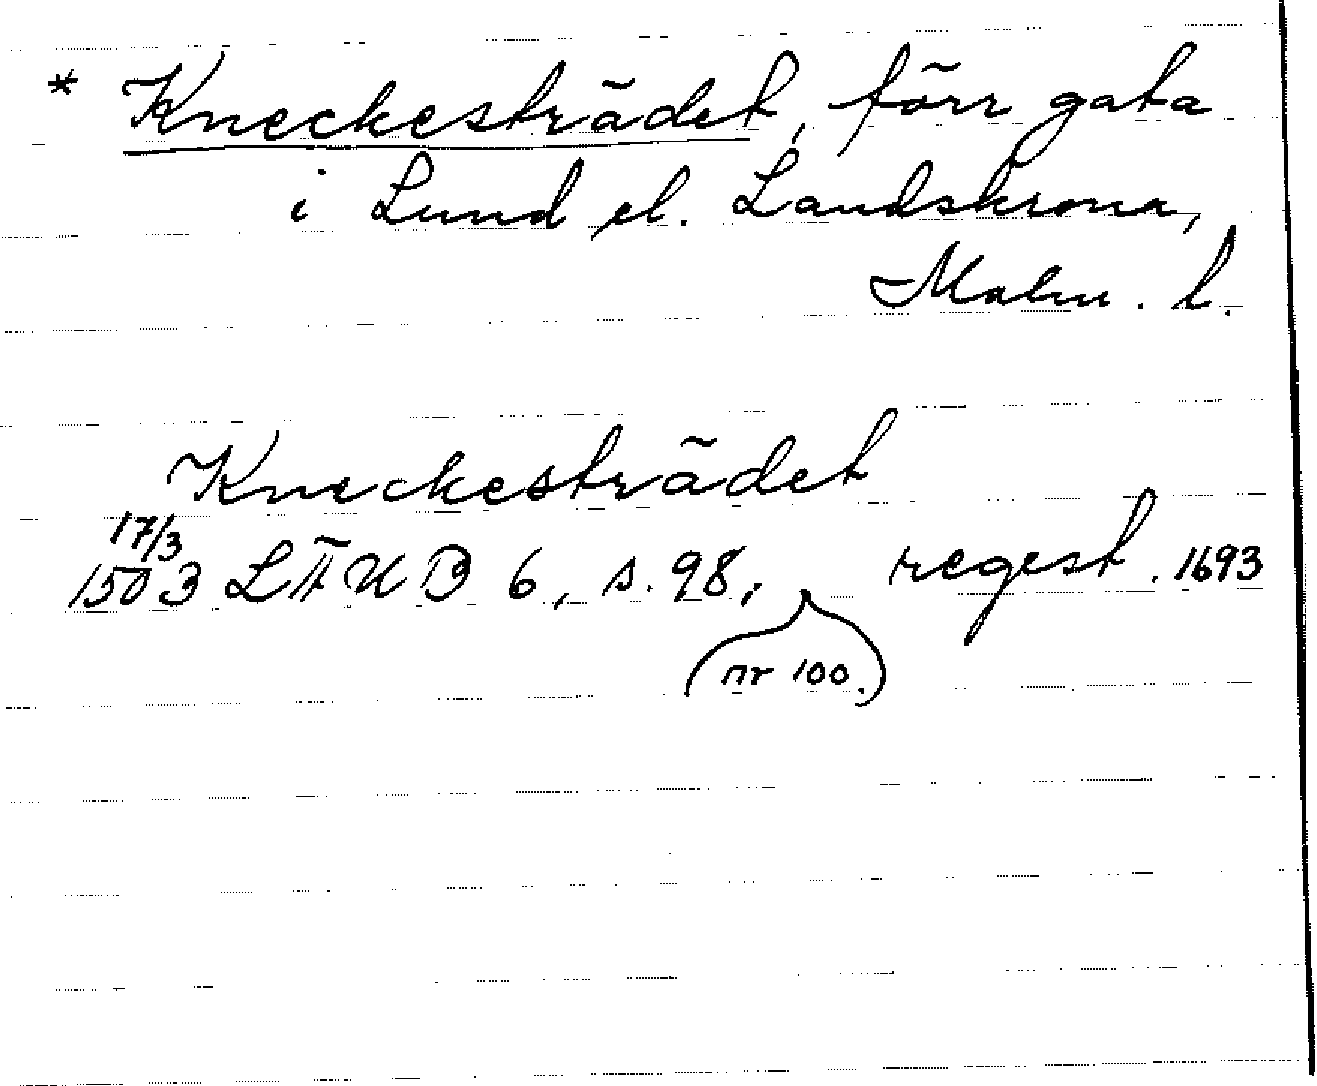 * Kneckesträdet, förr gata
i Lund el. Landskrona,
Malm. l.
Kneckesträdet
17/3
1503 LÄUB 6, s. 98, regest. 1693
(nr 100.)